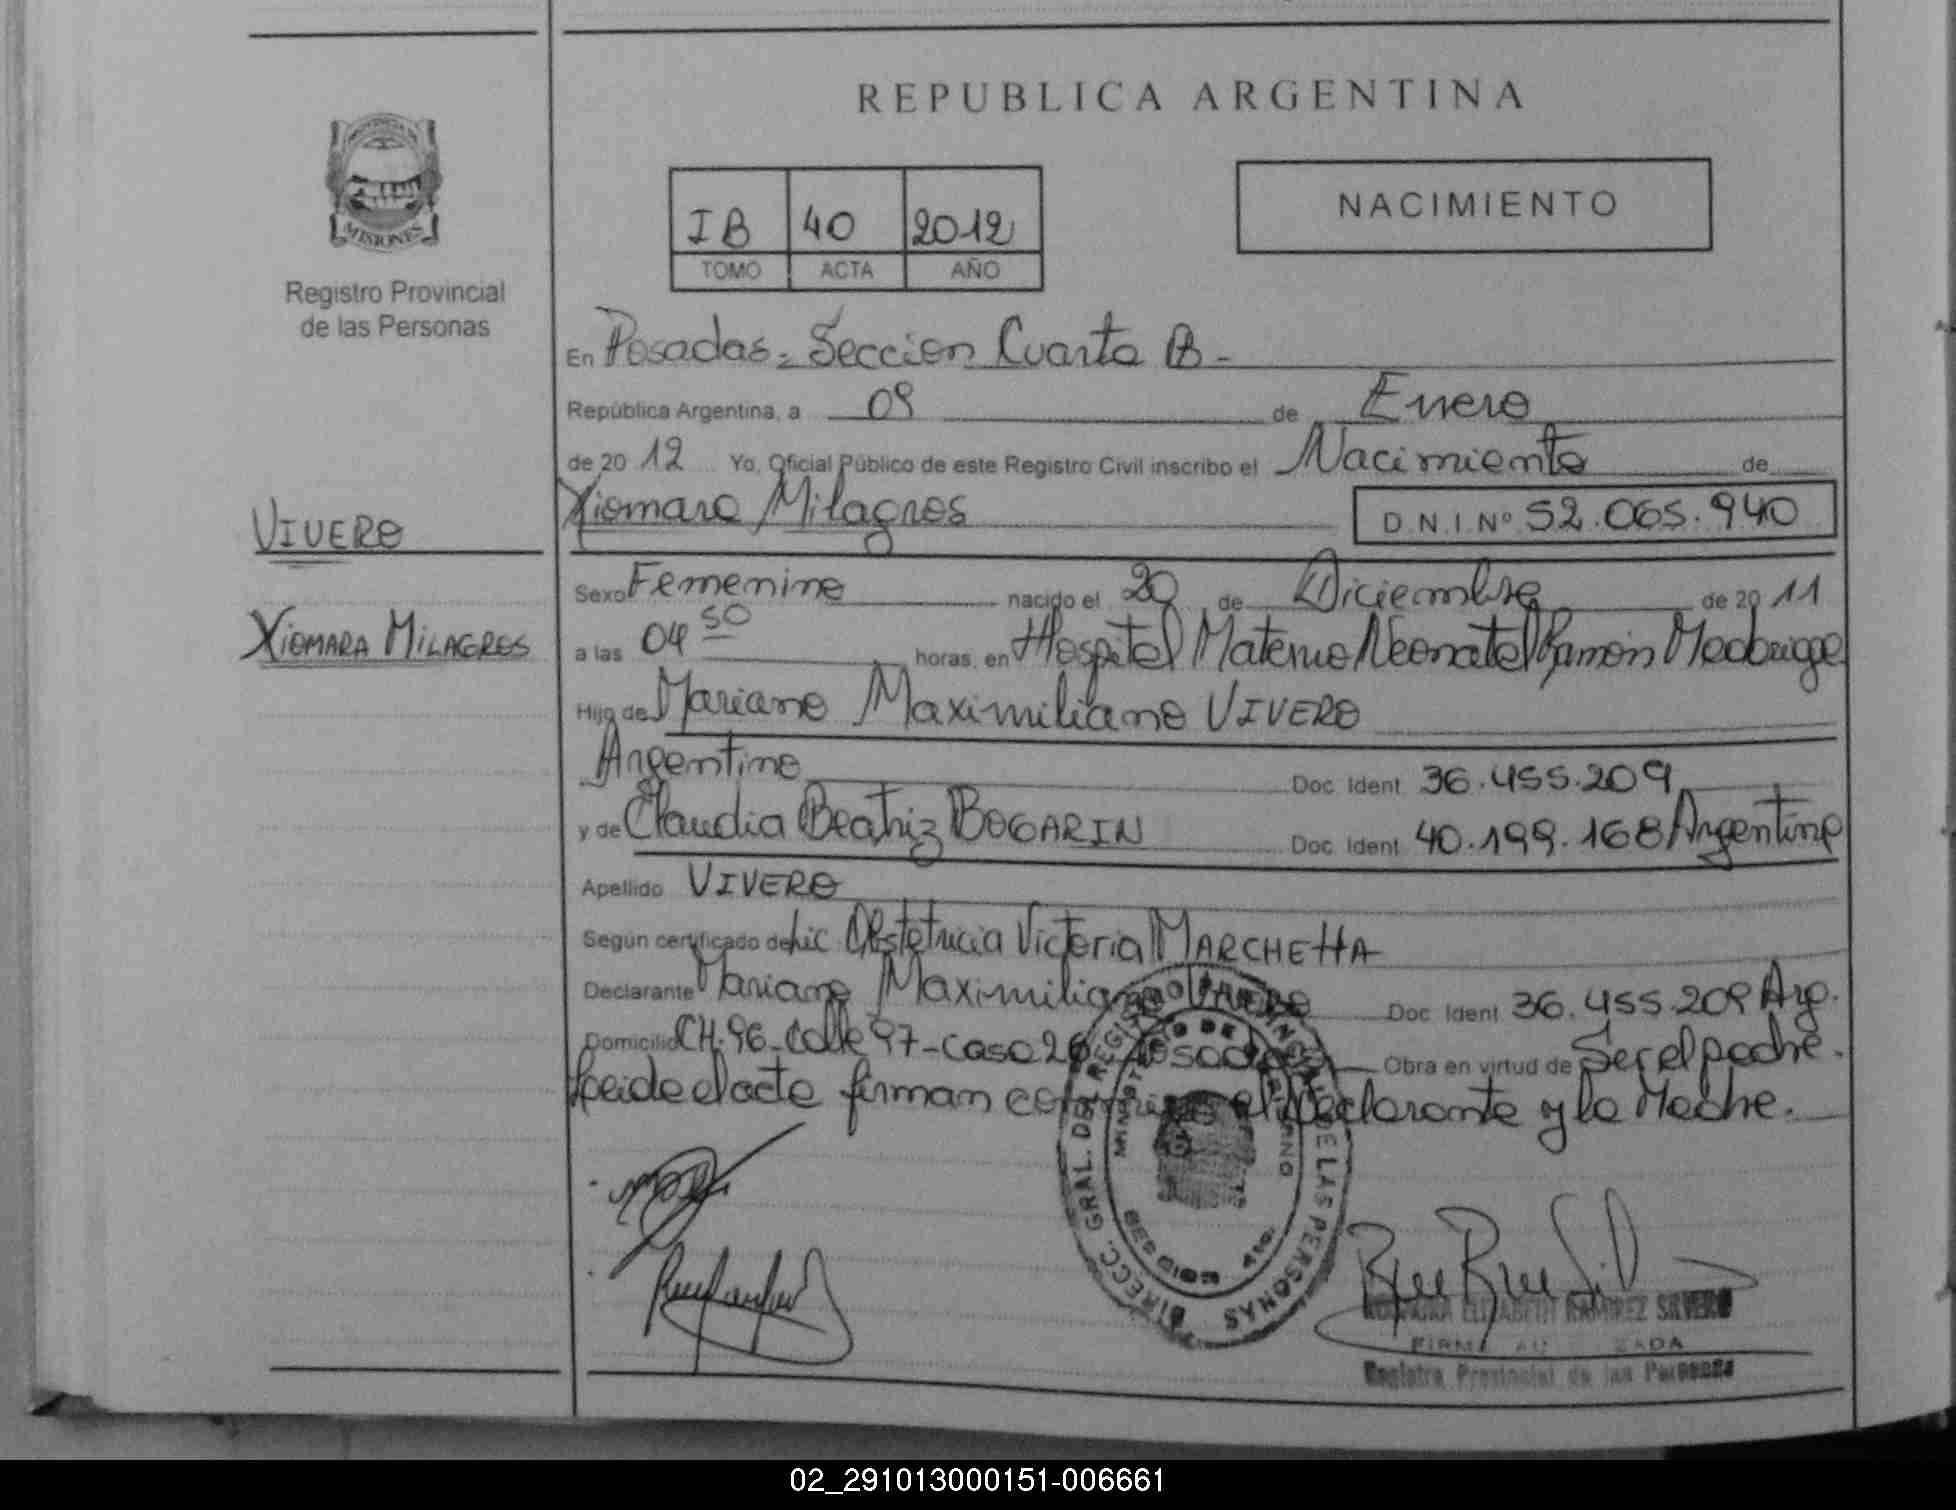 REPUBLICA ARGENTINA
PROVINCIA DE
MISIONES
Registro Provincial
de las Personas
NACIMIENTO
IB 40 2012
TOMO ACTA AÑO
En Posadas - Seccion Cuarta B -
República Argentina, a 09 de Enero
de 20 12 Yo, Oficial Público de este Registro Civil inscribo el Nacimiento de
Xiomara Milagros D.N.I.Nº 52.065.940
VIVERO
XIOMARA MILAGROS
Sexo Femenino nacido el 20 de Diciembre de 20 11
a las 04 50 horas, en Hospital Materno Neonatal Ramón Madariaga
Hijo de Mariano Maximiliano VIVERO
Argentino Doc. Ident. 36.455.209
y de Claudia Beatriz BOGARIN Doc. Ident. 40.199.168 Argentina
Apellido VIVERO
Según certificado de Lic. Obstetricia Victoria MARCHETTA
Declarante Mariano Maximiliano VIVERO Doc. Ident. 36.455.209 Arg.
Domicilio CH. 96 - Calle 97 - Casa 26 Posadas Obra en virtud de Ser el padre.
Leida el acta firman conmigo el Declarante y la Madre.
DIRECC. GRAL. DEL REGISTRO PROVINCIAL DE LAS PERSONAS
MINISTERIO DE
ELIZABETH RAMIREZ SILVERO
Registro Provincial de las Personas
02_291013000151-006661